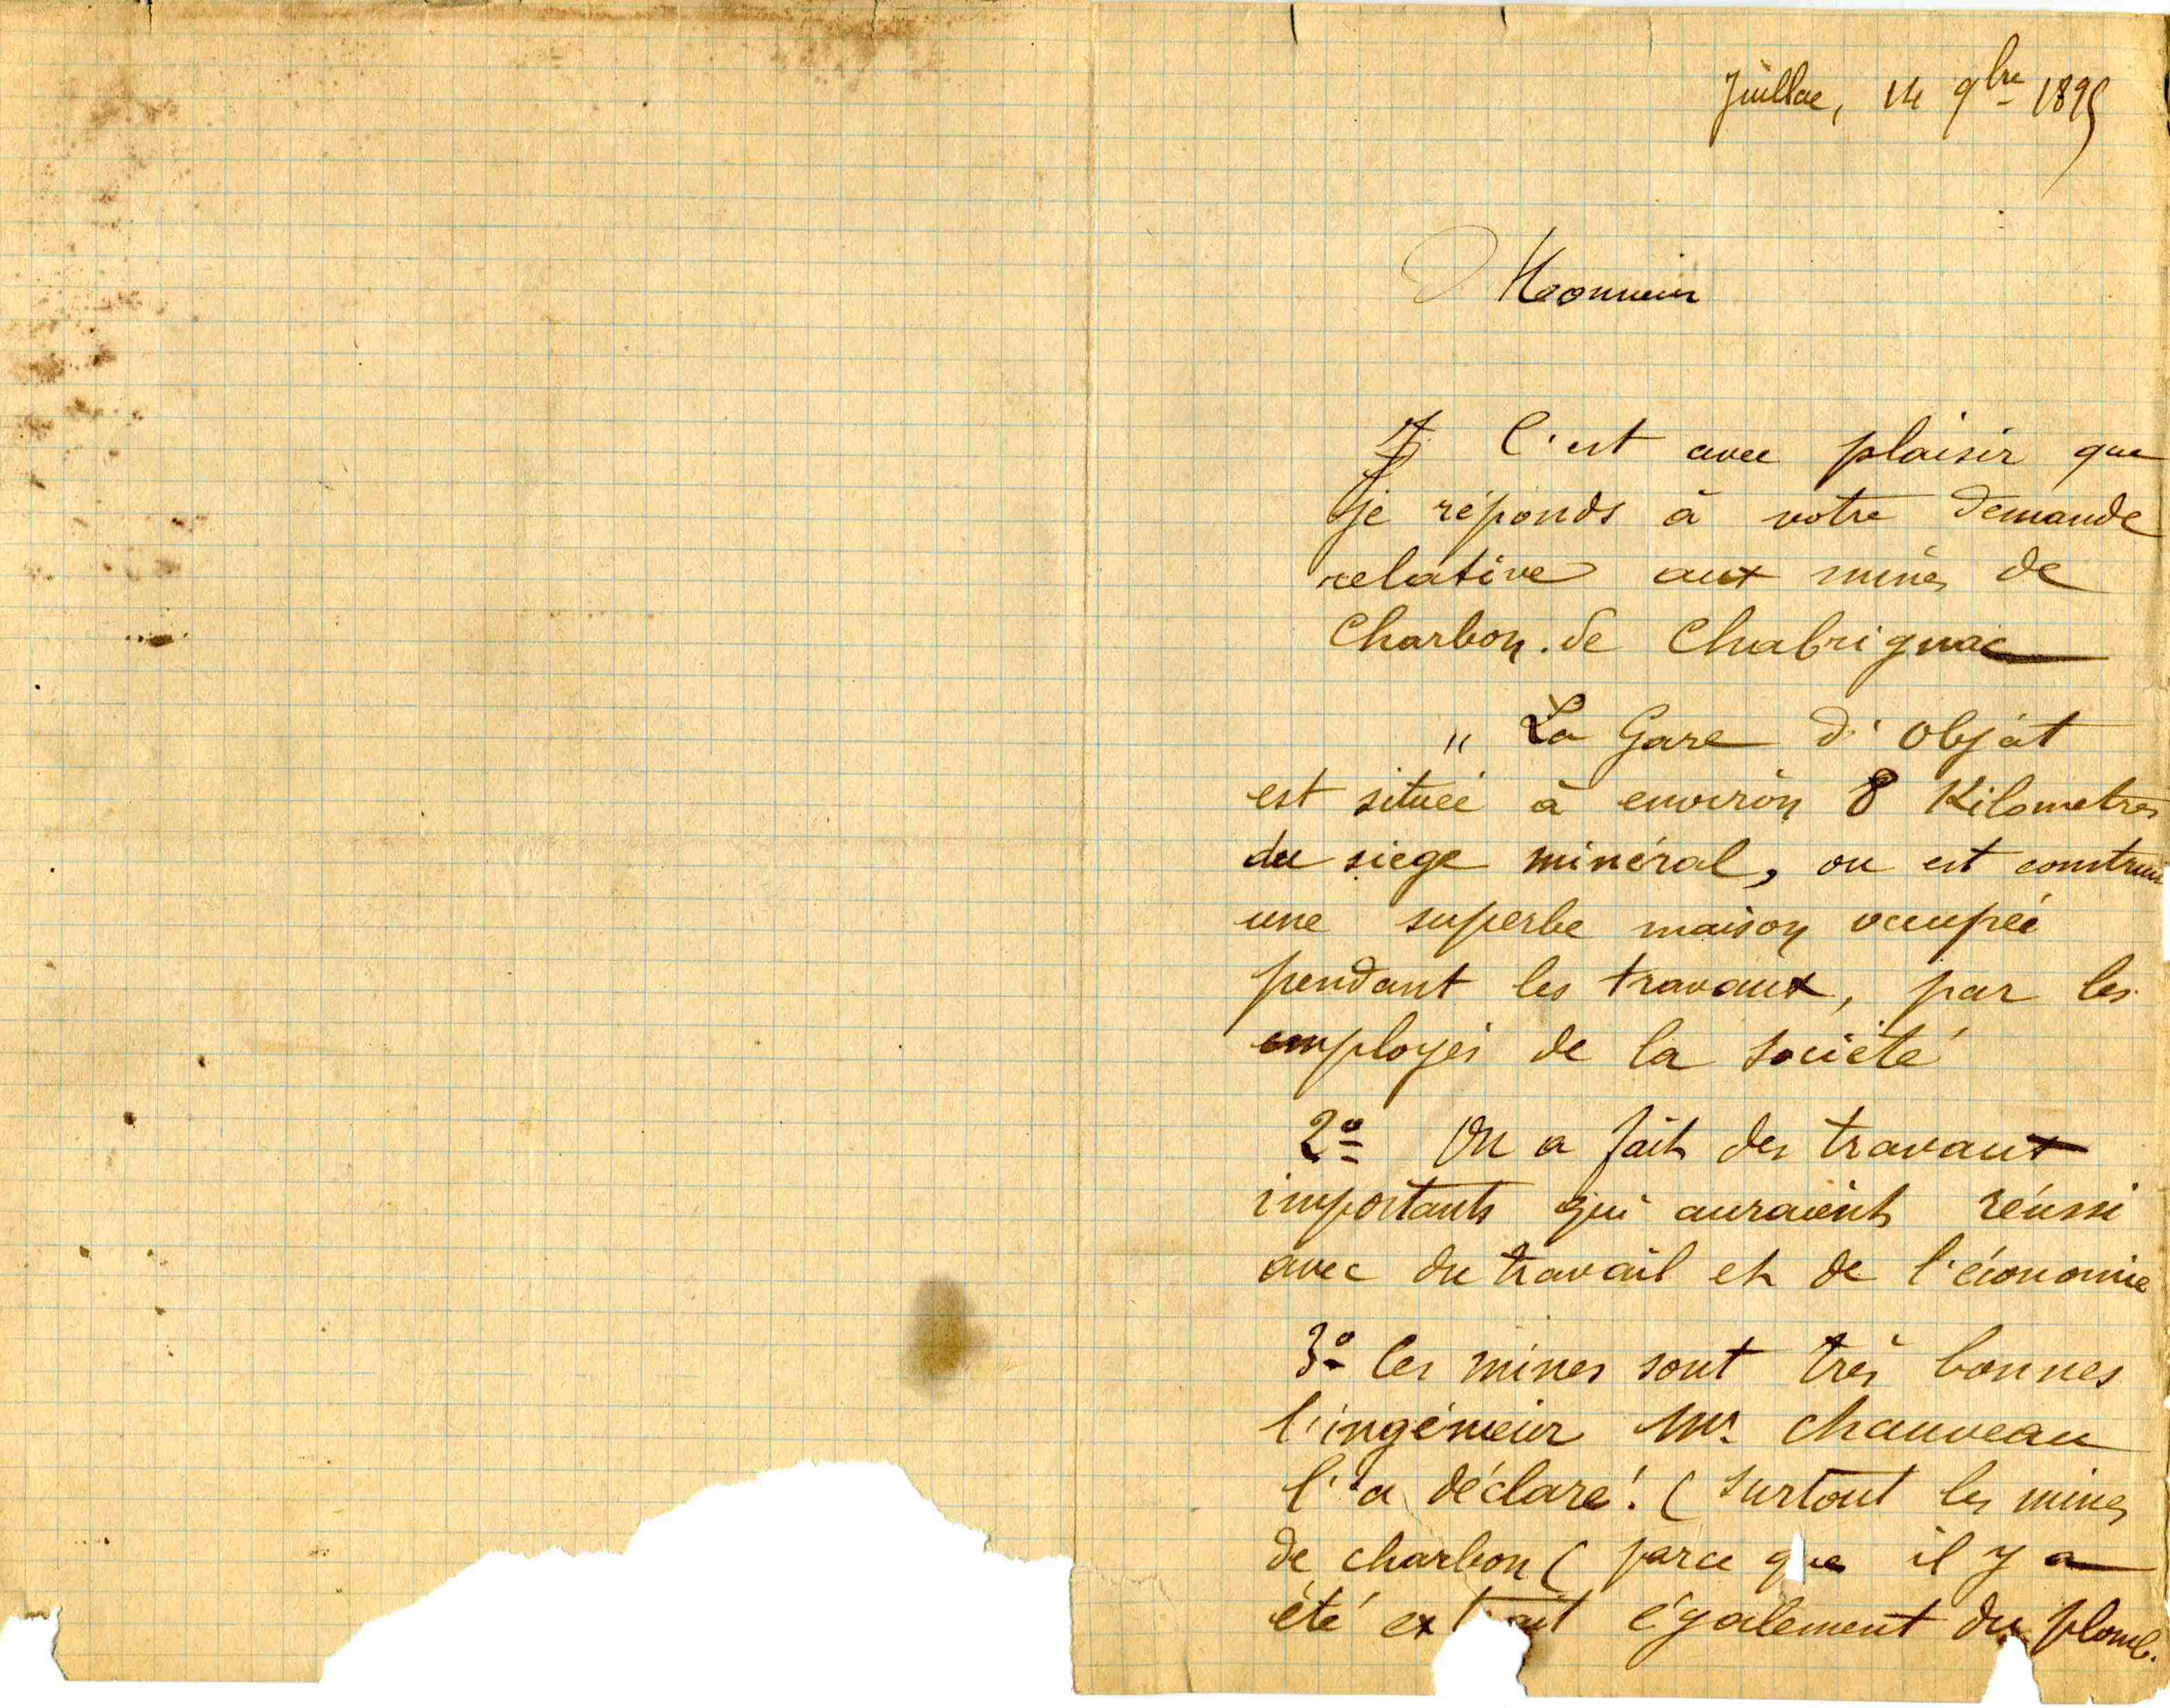 Juillac, 14 9bre 1895
Monsieur
C'est avec plaisir que
je réponds à votre demande
relative aux mines de
Charbon. de Chabrignac
" La Gare d'Objat
est située à environ 8 Kilometres
du siege minéral, ou est construit
une superbe maison occupée
pendant les travaux, par les
employés de la société
2º On a fait des travaux
importants qui auraient réussi
avec du travail et de l'économie
3º Ces mines sont très bonnes
l'ingénieur Mr. Chauveau
l'a déclaré! (surtout les mines
de charbon (parce que il y a
été extrait également du plomb.